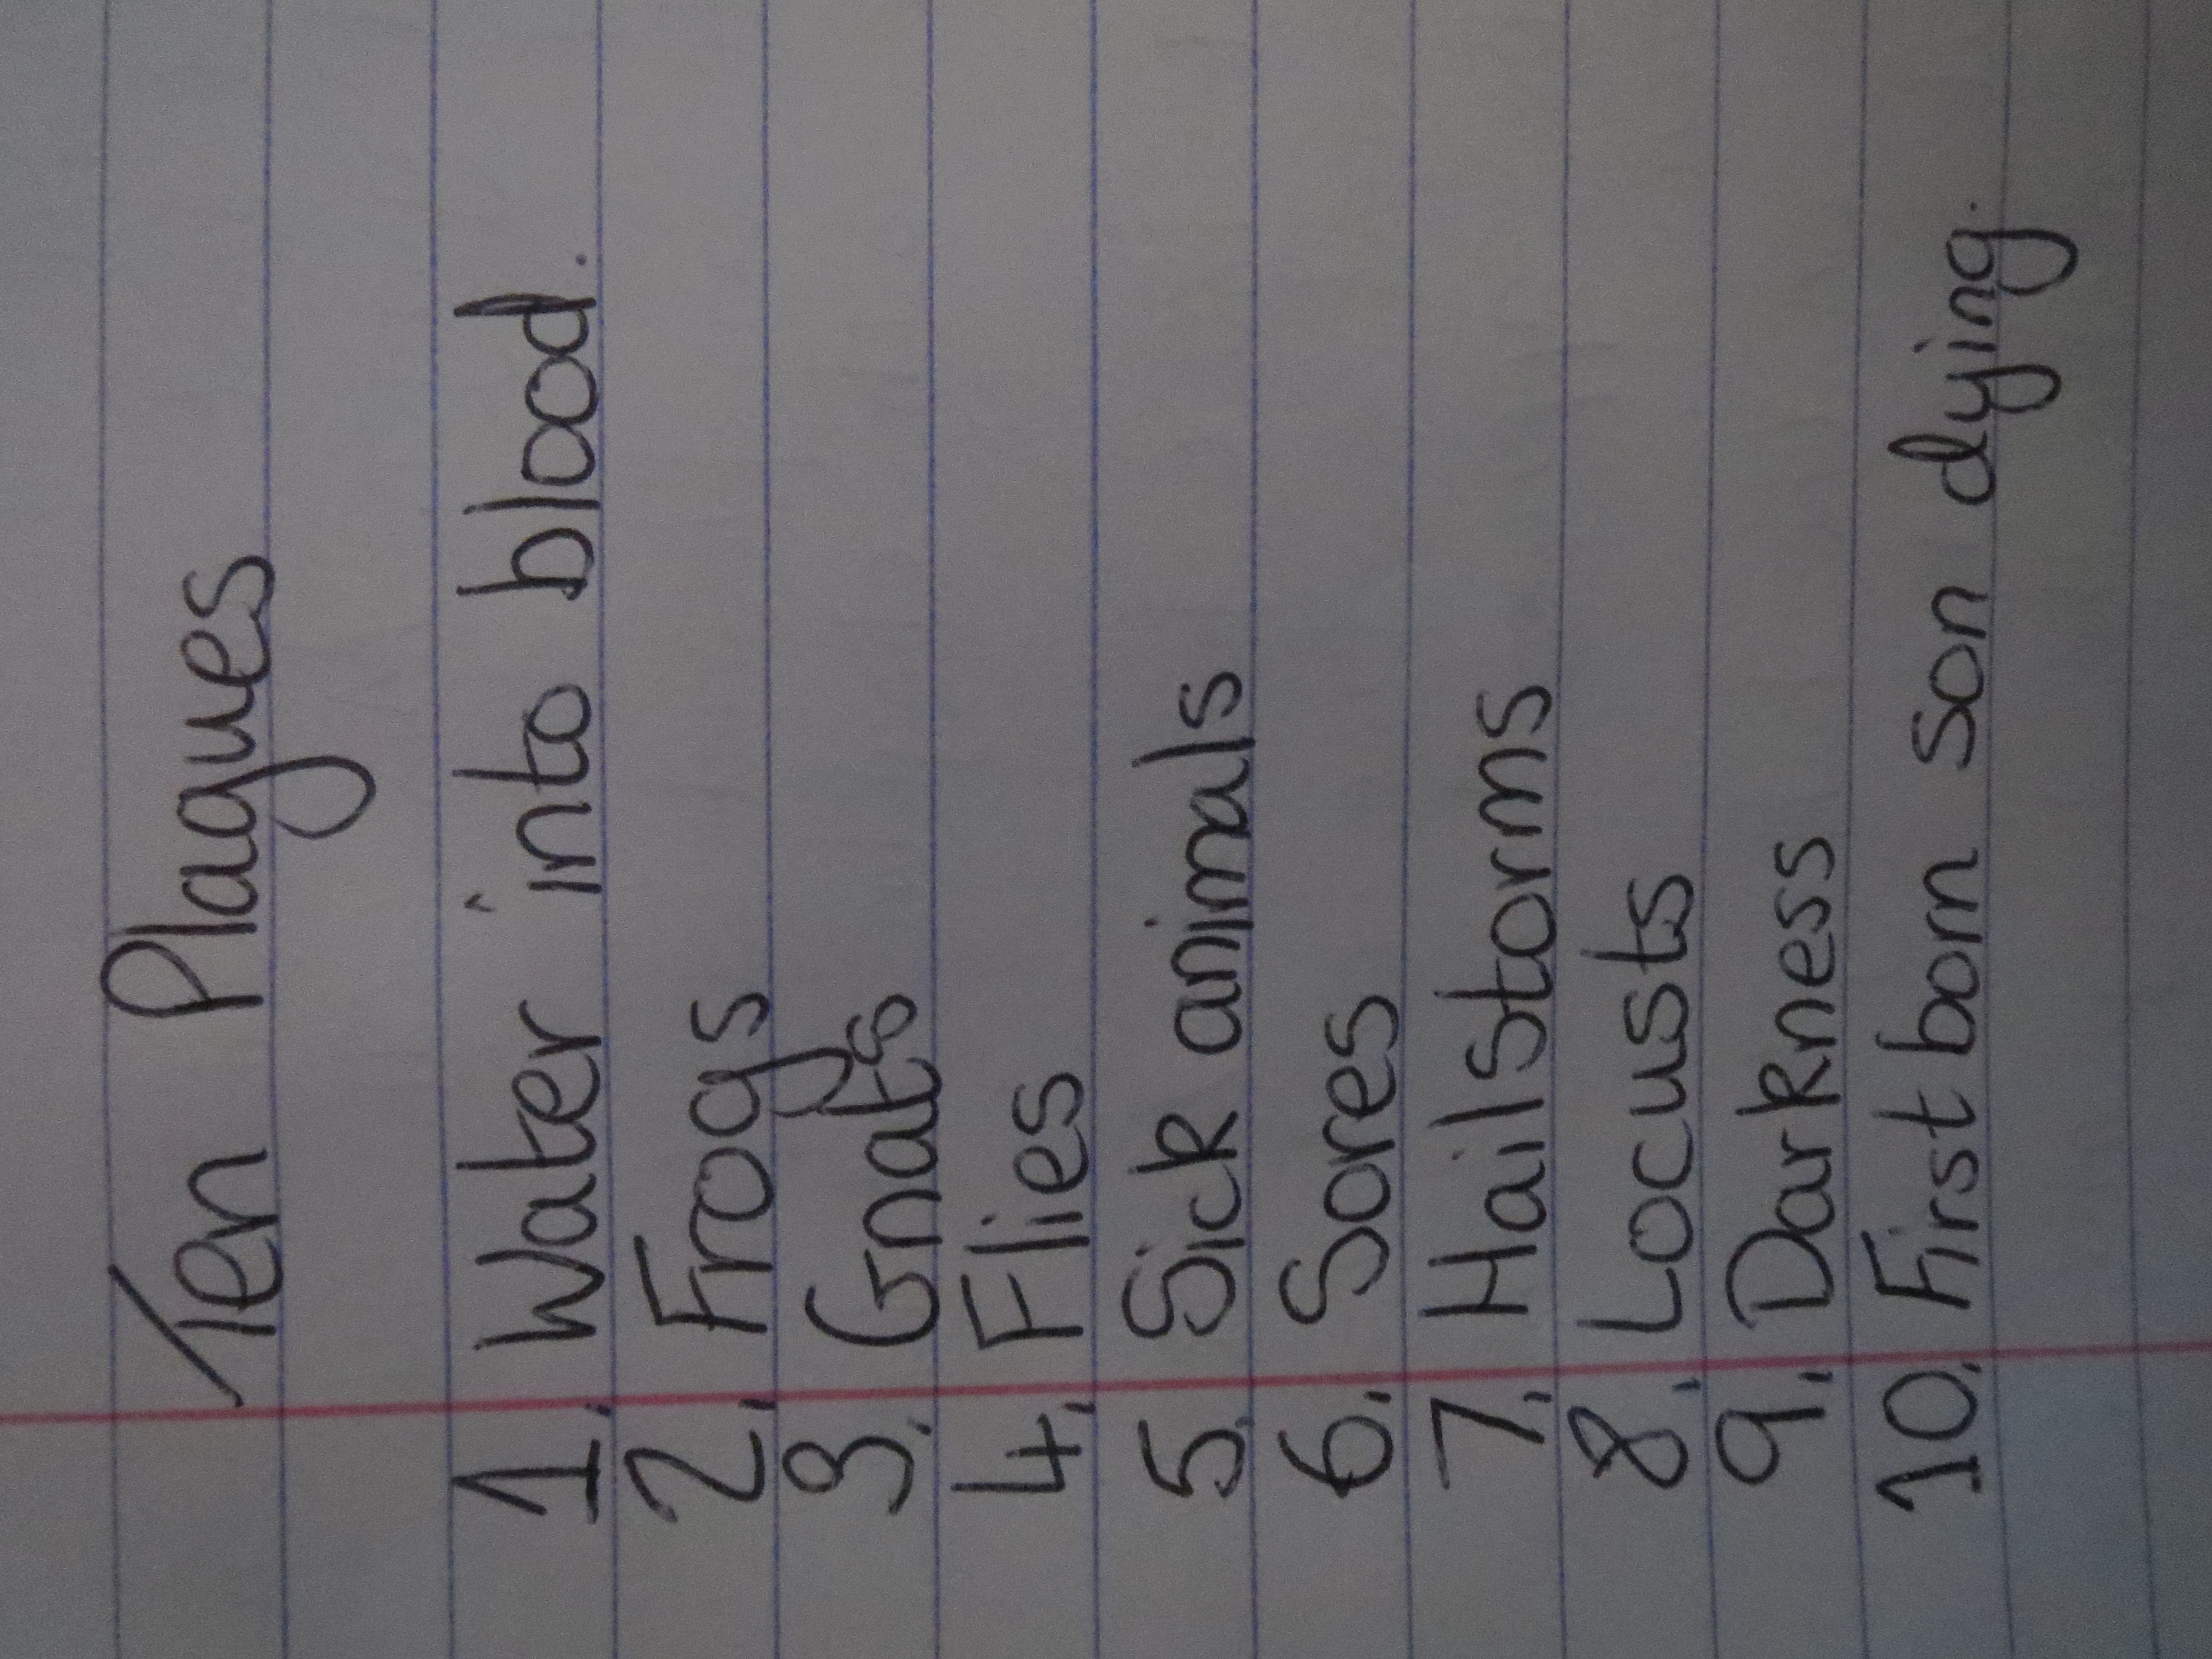 Ten Plagues
1. Water into blood.
2. Frogs
3. Gnats
4. Flies
5. Sick animals
6. Sores
7. Hailstorms
8. Locusts
9. Darkness
10. First born son dying.